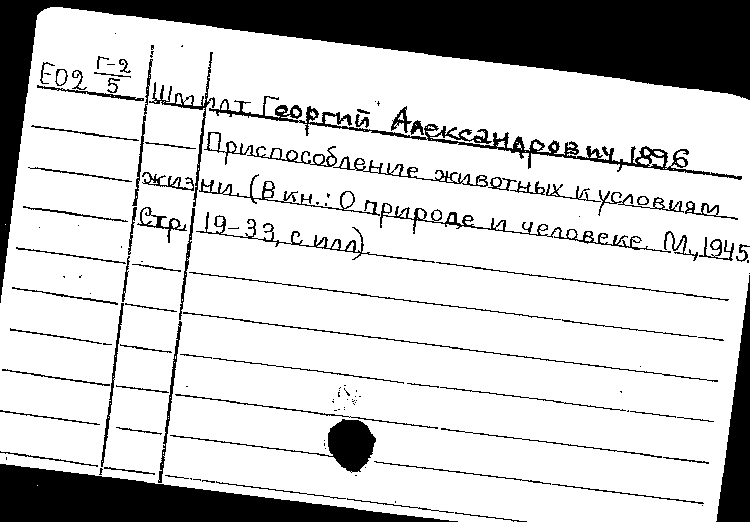 Е02 Г-2/5
Шмидт Георгий Александрович, 1896
Приспособление животных к условиям
жизни. (В кн.: О природе и человеке. М., 1945.
Стр. 19-33, с илл)